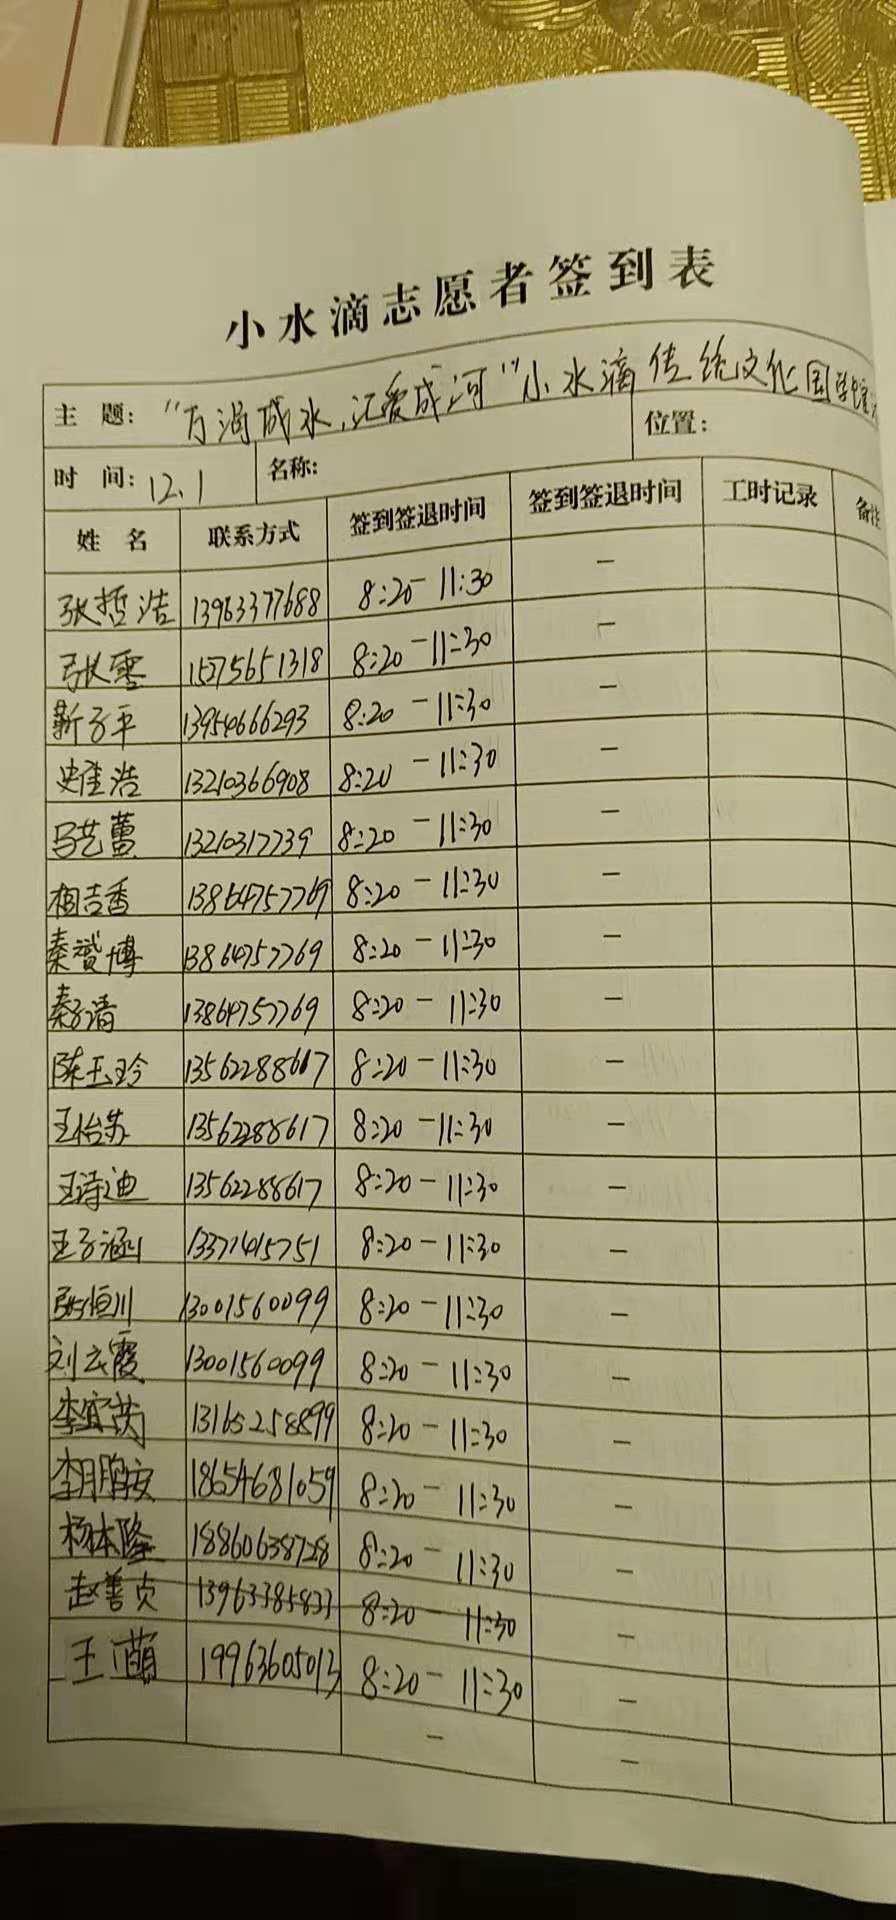 小水滴志愿者签到表
主 题: “万滴成水,汇爱成河”小水滴传统文化国学
时 间: 12.1 名称: 位置:
姓 名 联系方式 签到签退时间 签到签退时间 工时记录 备注
张哲浩 13963377688 8:20- 11:30 —
张雯 15275651318 8:20 -11:30 —
靳子平 13954666293 8:20 - 11:30 —
史淮浩 13210366908 8:20 - 11:30 —
马艺蕾 13210317739 8:20 - 11:30 —
相吉香 13864757769 8:20 - 11:30 —
秦赟博 13864757769 8:20 - 11:30 —
秦子清 13864757769 8:20 - 11:30 —
陈玉珍 13562288617 8:20 - 11:30 —
王怡苏 13562288617 8:20 -11:30 —
王诗迪 13562288617 8:20 - 11:30 —
王子涵 13371415751 8:20 - 11:30 —
张恒川 13001560099 8:20 - 11:30 —
刘云霞 13001560099 8:20 - 11:30 —
李宜芮 13165258899 8:20 - 11:30 —
李鹏安 18654681059 8:20 - 11:30 —
杨本隆 18860638728 8:20 - 11:30 —
赵善贞 13963385833 8:20 - 11:30 —
王萌 19963605013 8:20 - 11:30 —
— —